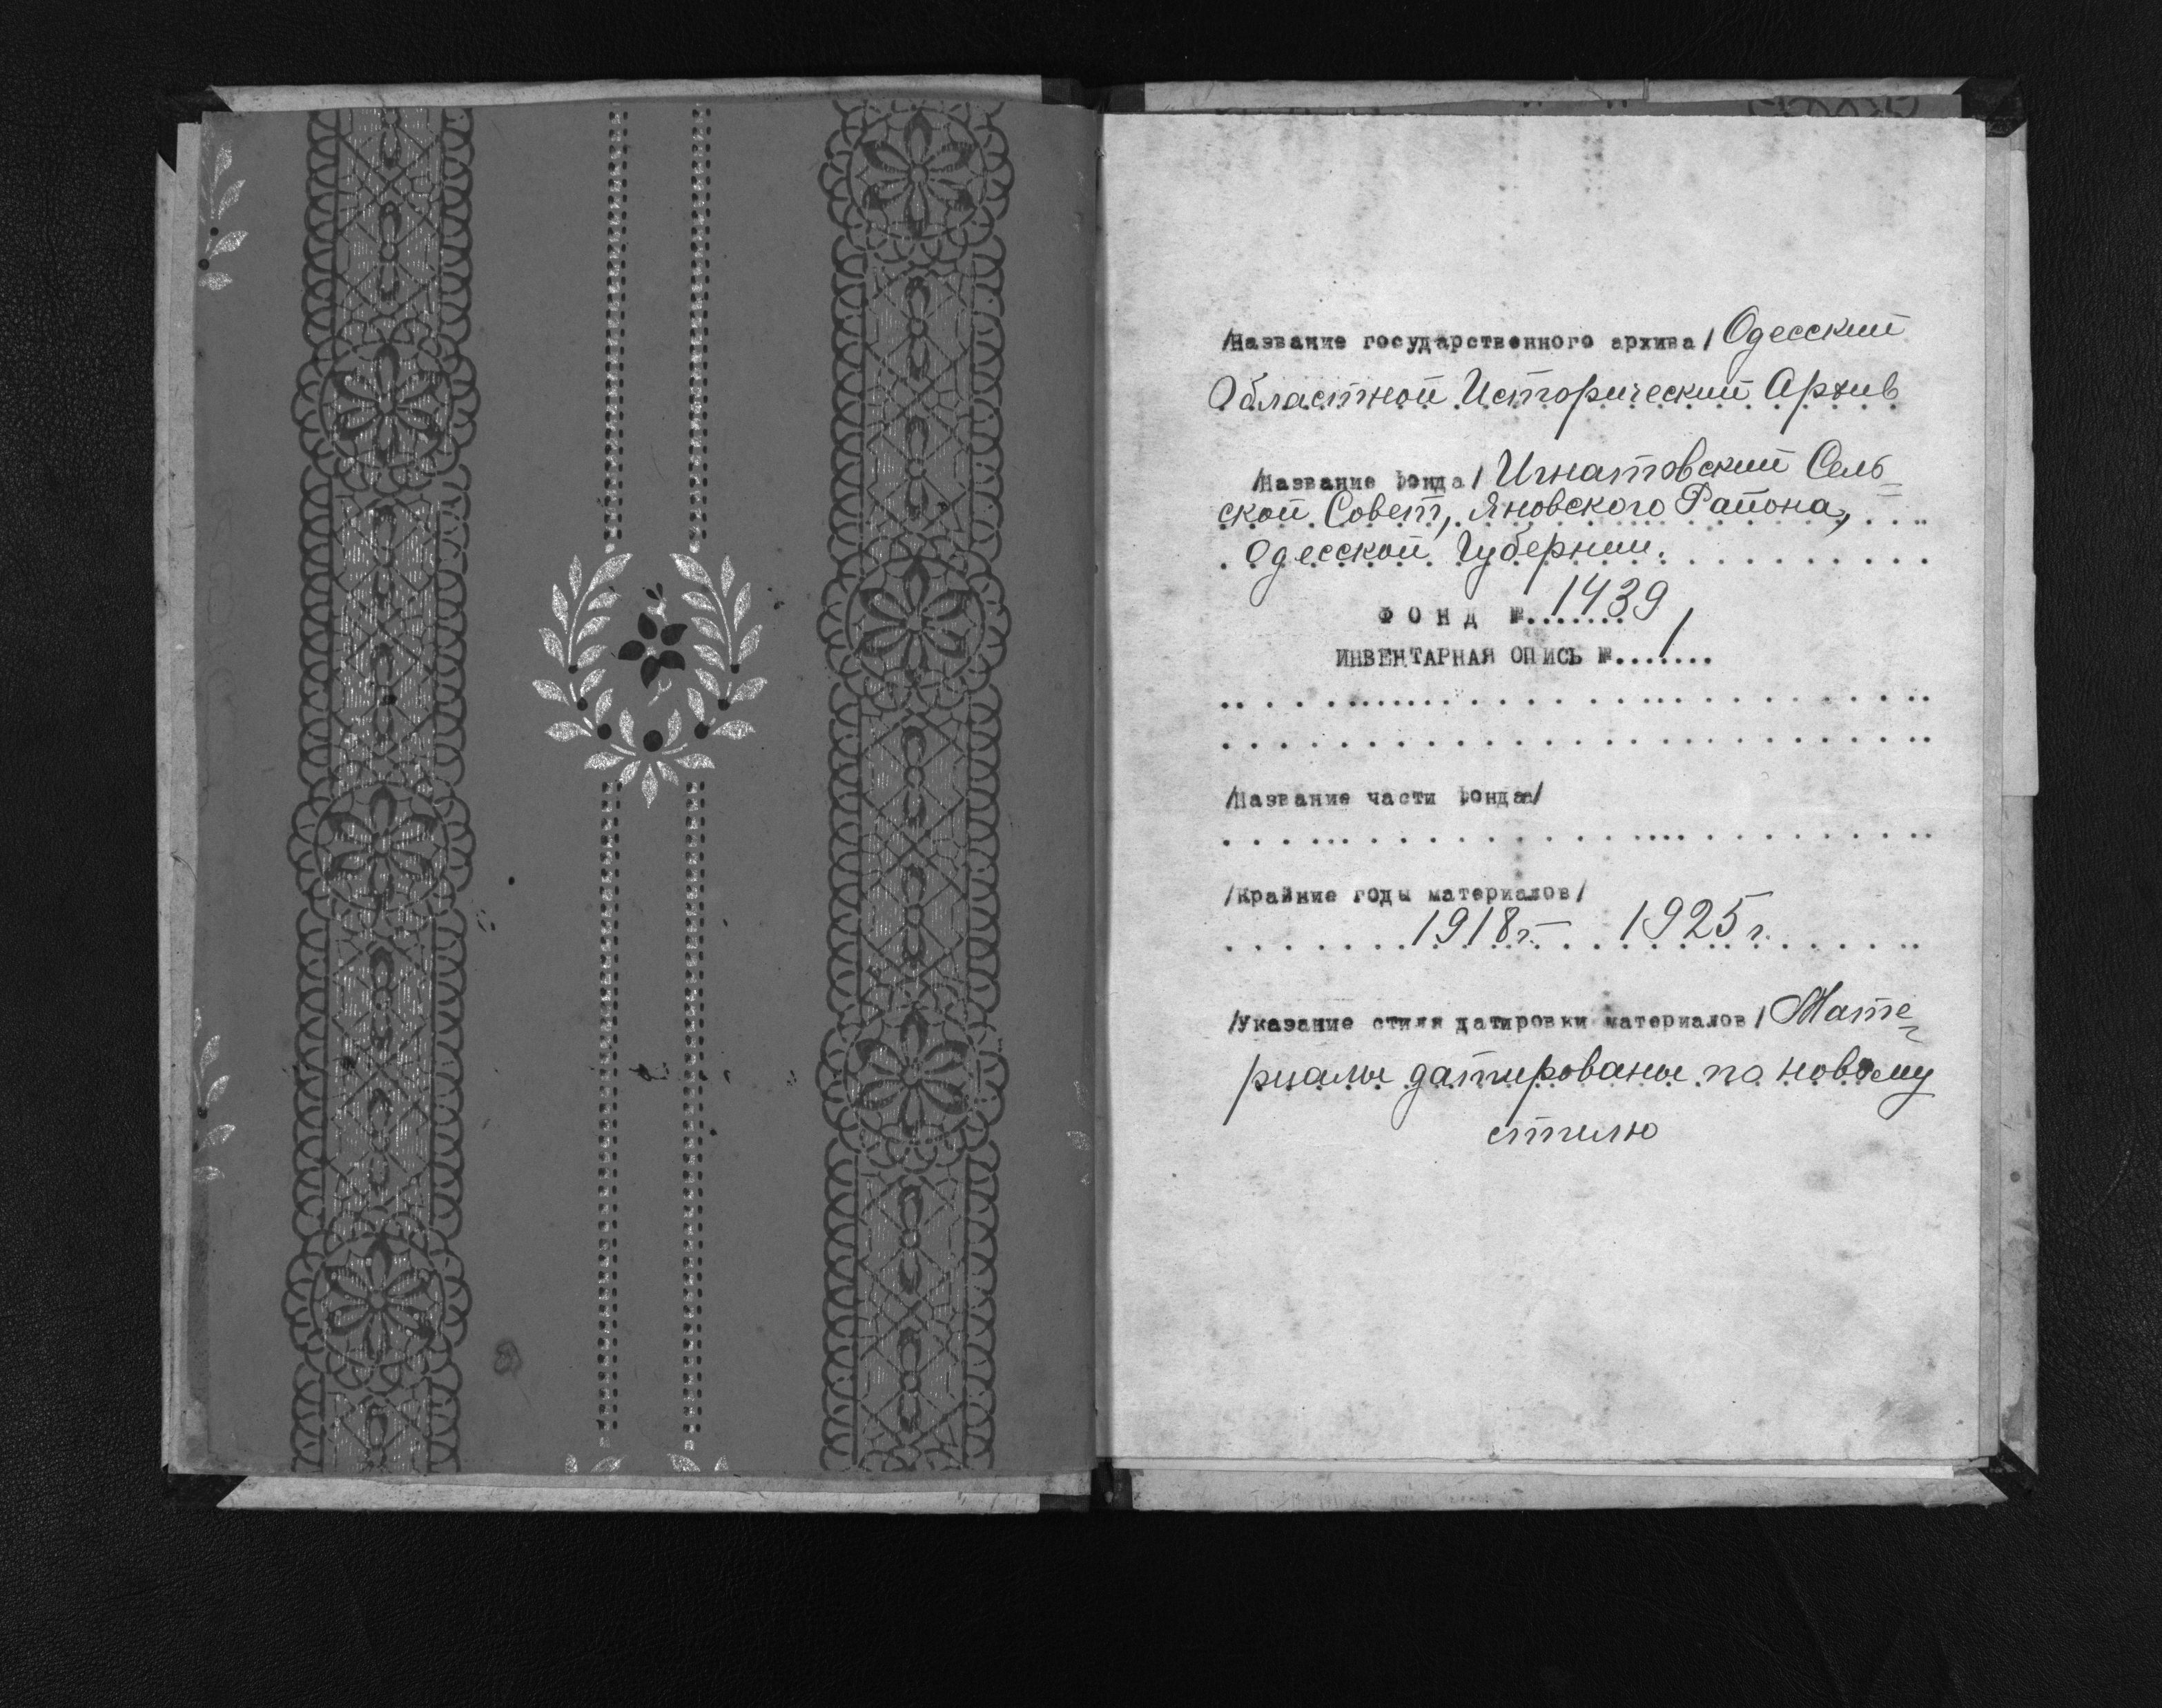 /Название государственного архива/ Одесский
Областной Исторический Архив
/Название фонда/ Игнатовский Сель
ской Совет, Яновского Района,
Одесской Губернии.
ФОНД №.......1439
ИНВЕНТАРНАЯ ОПИСЬ №.......1
/Название части фонда/
/Крайние годы материалов/
1918г. — 1925г.
/Указание стиля датировки материалов/ Мате-
риалы датированы по новому
стилю